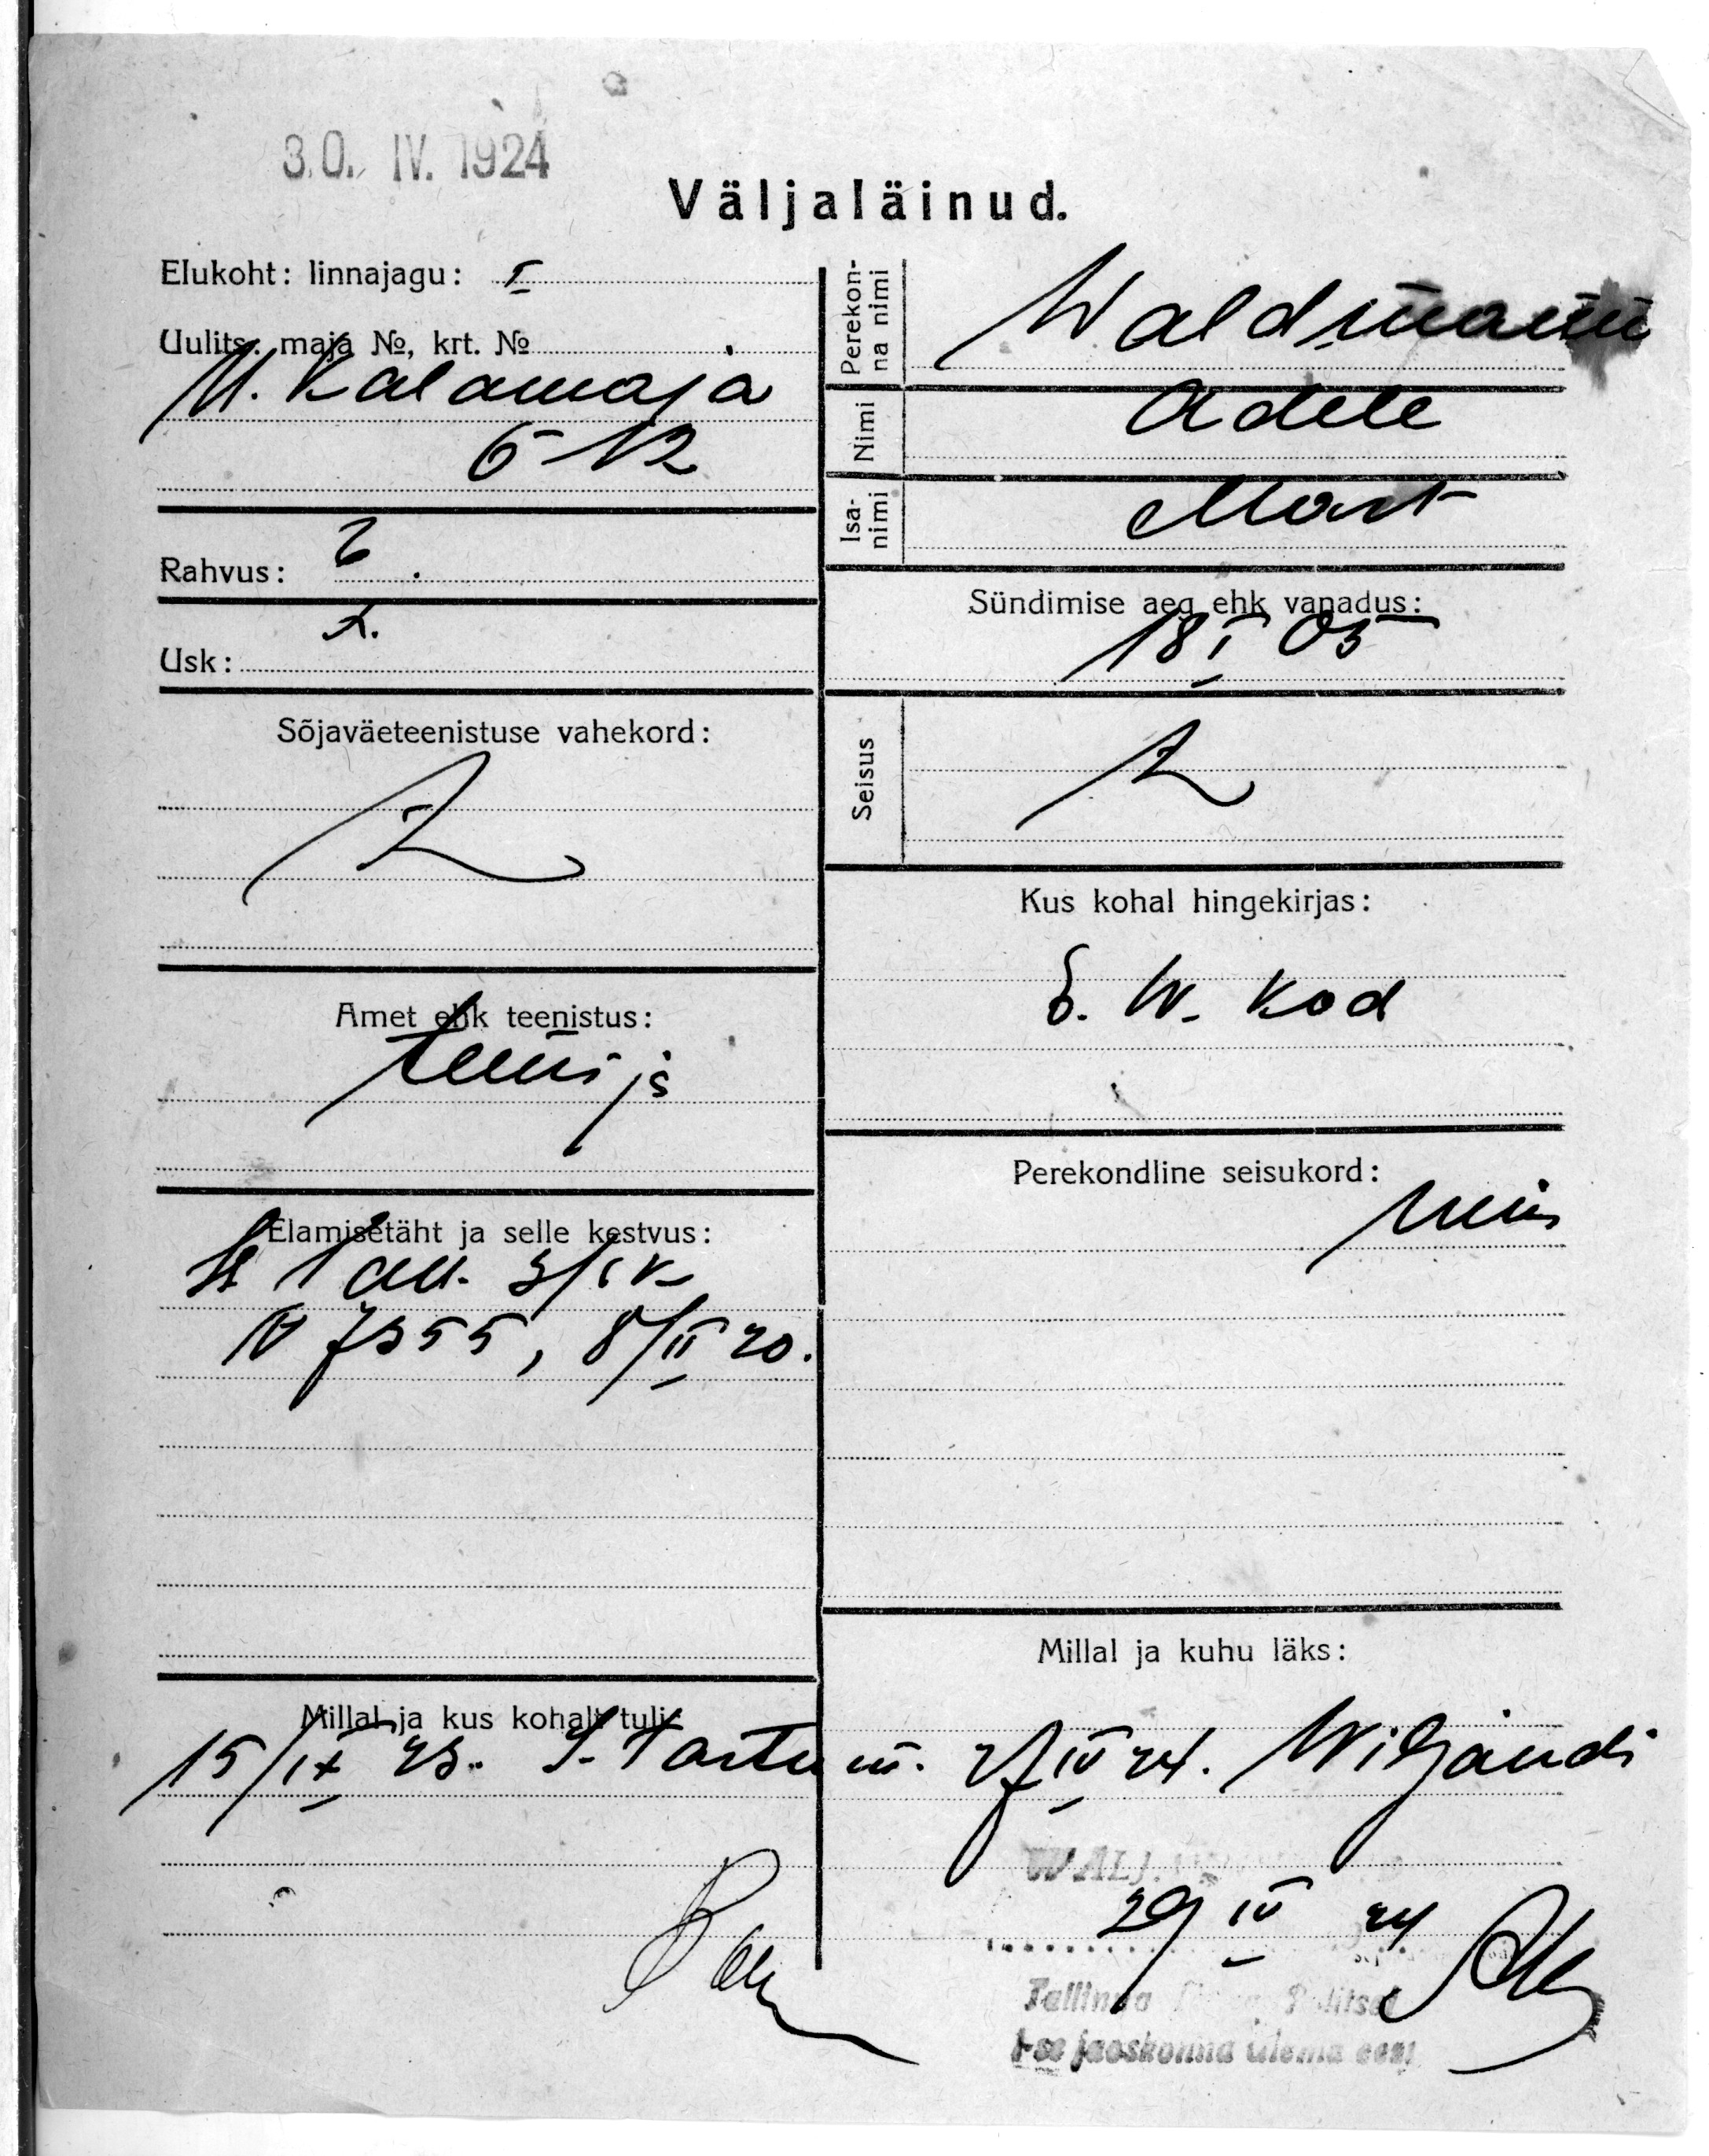 30. IV. 1924
Väljaläinud.
Elukoht: linnajagu: I
Uulits, maja №, krt. №
U. Kalamaja
6-12
Rahvus: E.
Usk: L.
Sõjaväeteenistuse vahekord:
Amet ehk teenistus:
teenija
Elamisetäht ja selle kestvus:
№ 7355, 8/II 20.
Millal ja kus kohalt tuli:
15/IX 23. Tartu m.
Perekonna nimi
Waldmann
Nimi
Adele
Isanimi
Mart
Sündimise aeg ehk vanadus:
18 I 05
Seisus
Kus kohal hingekirjas:
E. W. kod
Perekondline seisukord:
Millal ja kuhu läks:
27 IV 24. Wiljandi
WALJ.
29 IV 24
Tallinna Politsei
I-se jaoskonna ülema eest